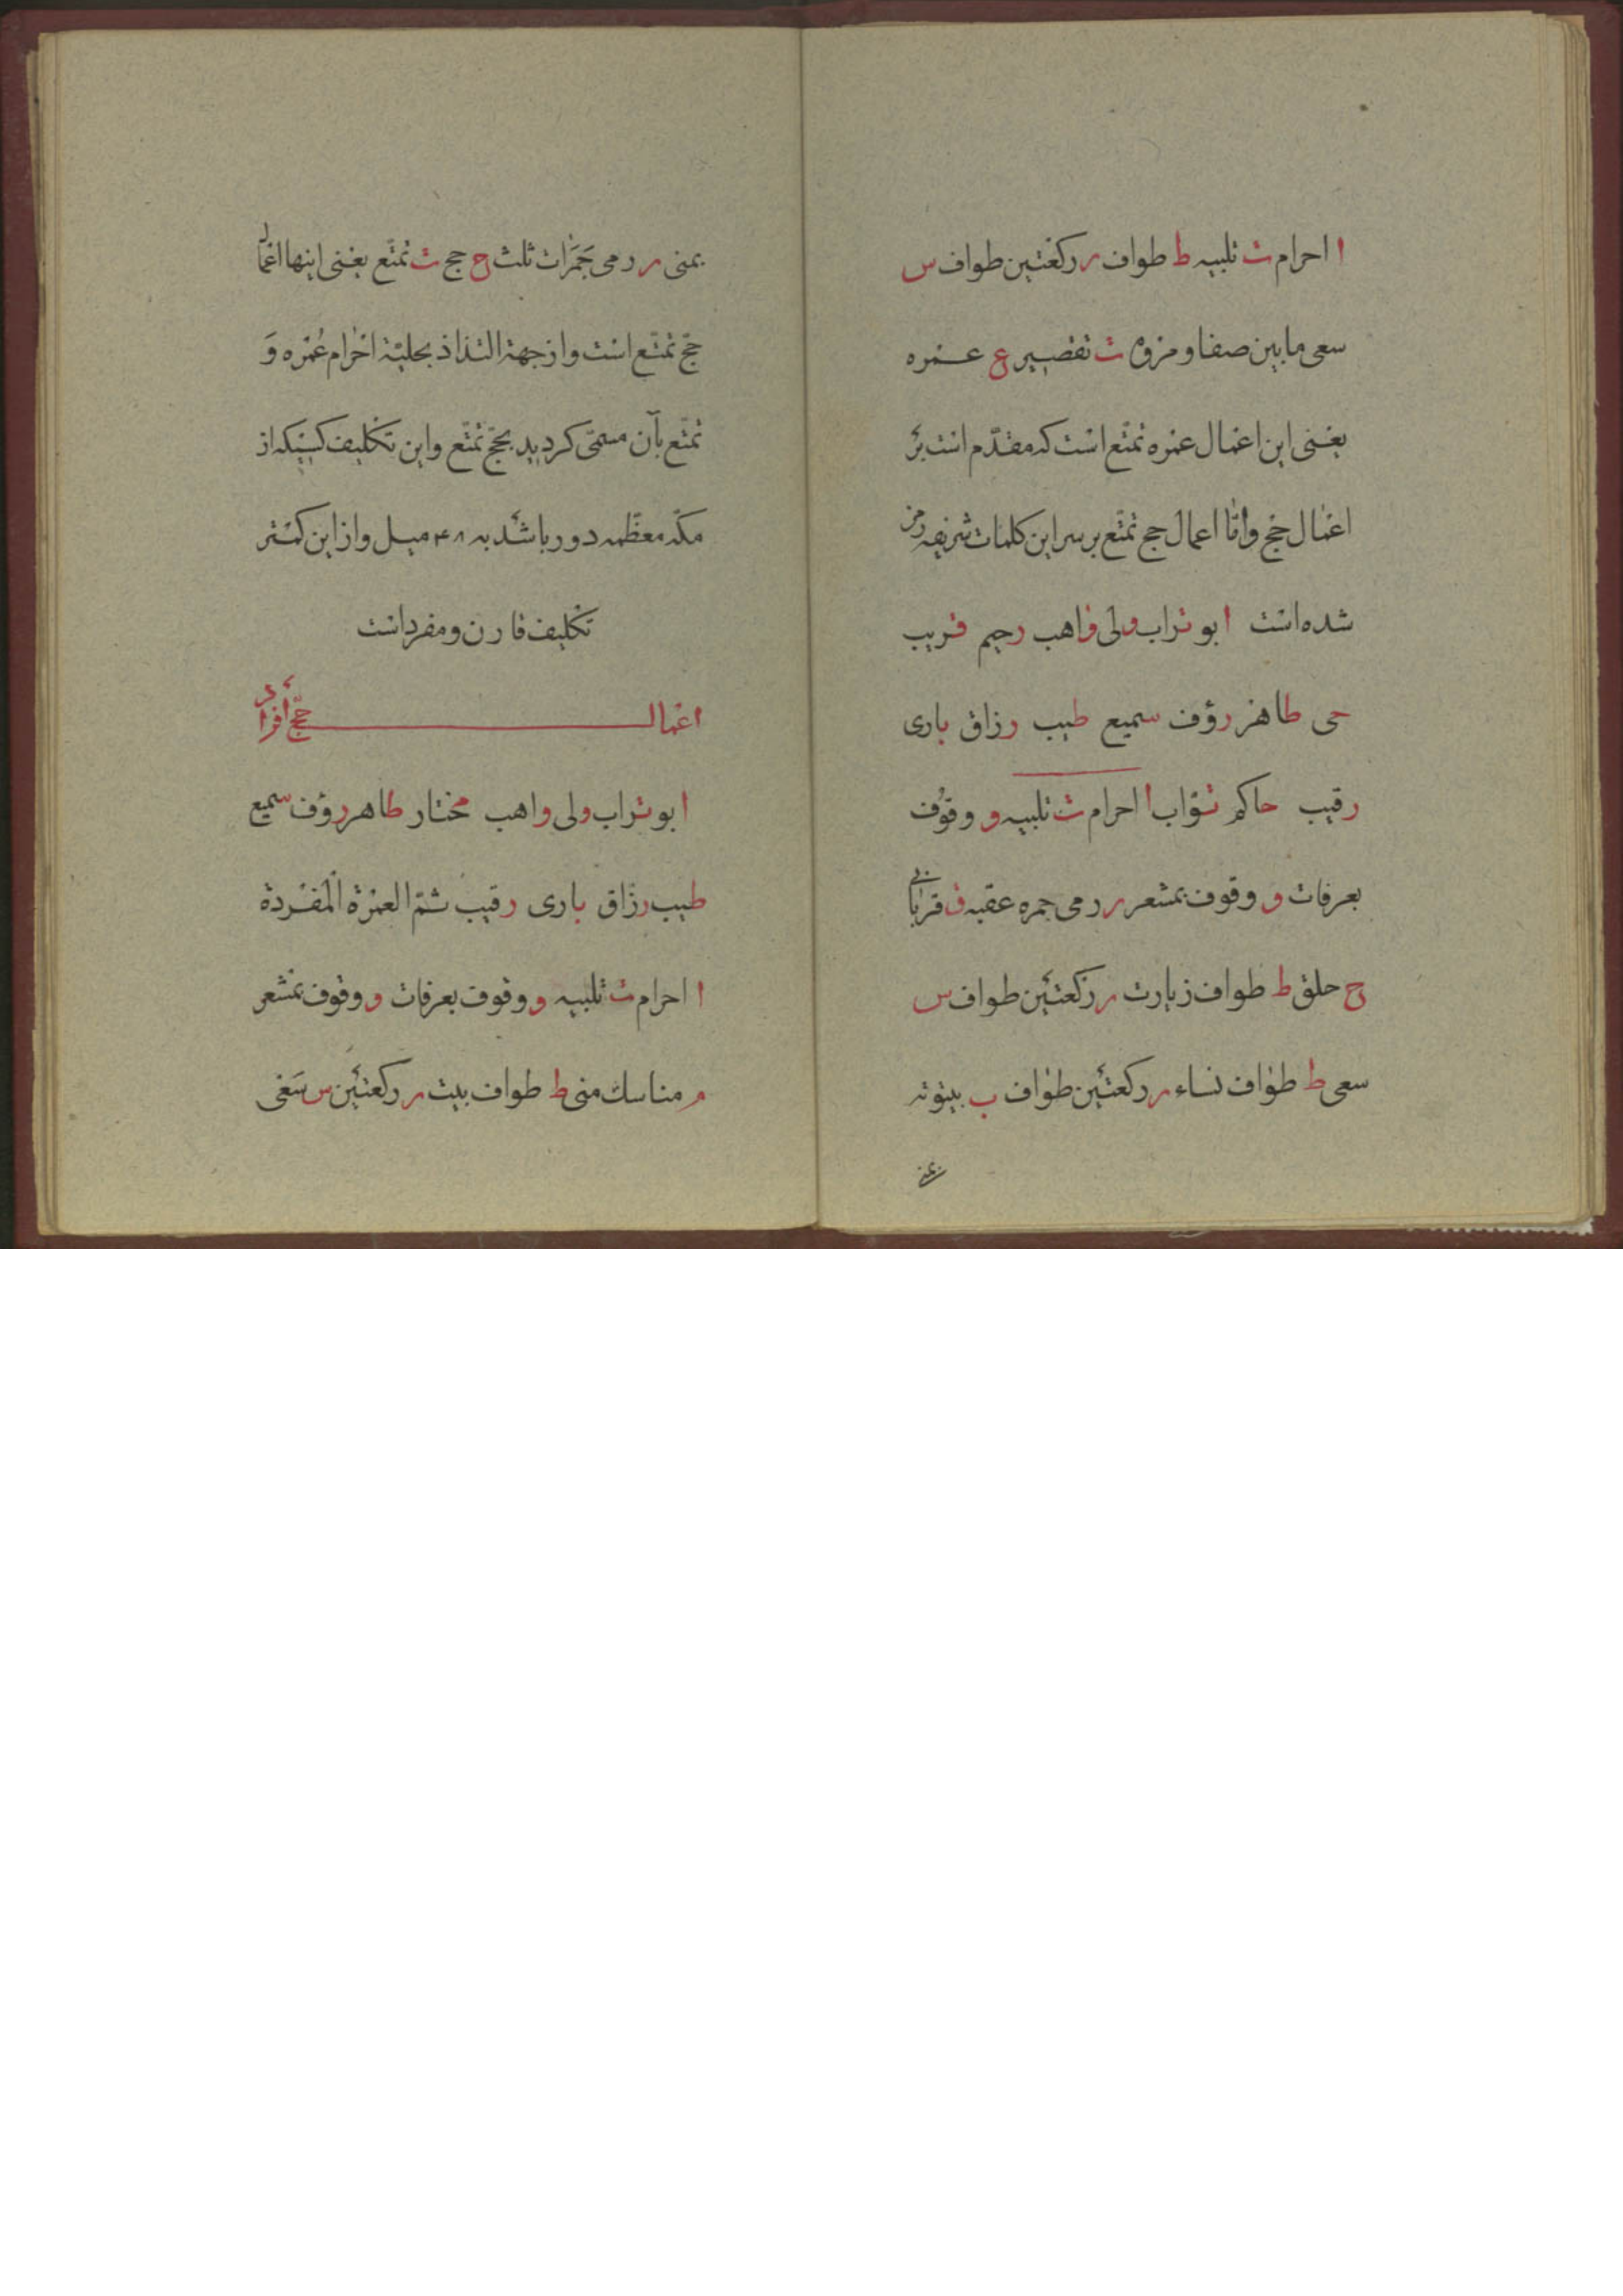 ا احرام ت تلبیه ط طواف ر رکعتین طواف س
سعی مابین صفا و مروه ت تقصیر ع عمره
یعنی این اعمال عمره تمتّع است که مقدّم است بر
اعمال حج وامّا اعمال حج تمتّع بر سر این کلمات شریفه رمز
شده است ابو تراب ولی واهب رحیم قریب
حی طاهر رؤف سمیع طیب رزاق باری
رقیب حاکم توّاب ا احرام ت تلبیه و وقوف
بعرفات و وقوف بمشعر ر رمی جمره عقبه ق قربانی
ح حلق ط طواف زیارت ر رکعتین طواف س
سعی ط طواف نساء ر رکعتین طواف ب بیتوته
بمنی
بمنی ر رمی جَمَرات ثلث ح حج ت تمتّع یعنی اینها اعمال
حجّ تمتّع است و از جهة التذاذ بحلیّة احرام عُمره وَ
تمتّع بآن مسمّی کردید بحجّ تمتّع و این تکلیف کسیکه از
مکّه معظّمه دور باشد به ۴۸ میل و از این کمتر
تکلیف قارن و مفرد است
اعمال حجّ افراد
ابو تراب ولی واهب مختار طاهر رؤف سمیع
طیب رزّاق باری رقیب ثمّ العمرة الْمفْردة
ا احرام ت تلبیه و وقوف بعرفات و وقوف بمشعر
م مناسك منی ط طواف بیت ر رکعتین س سَعی